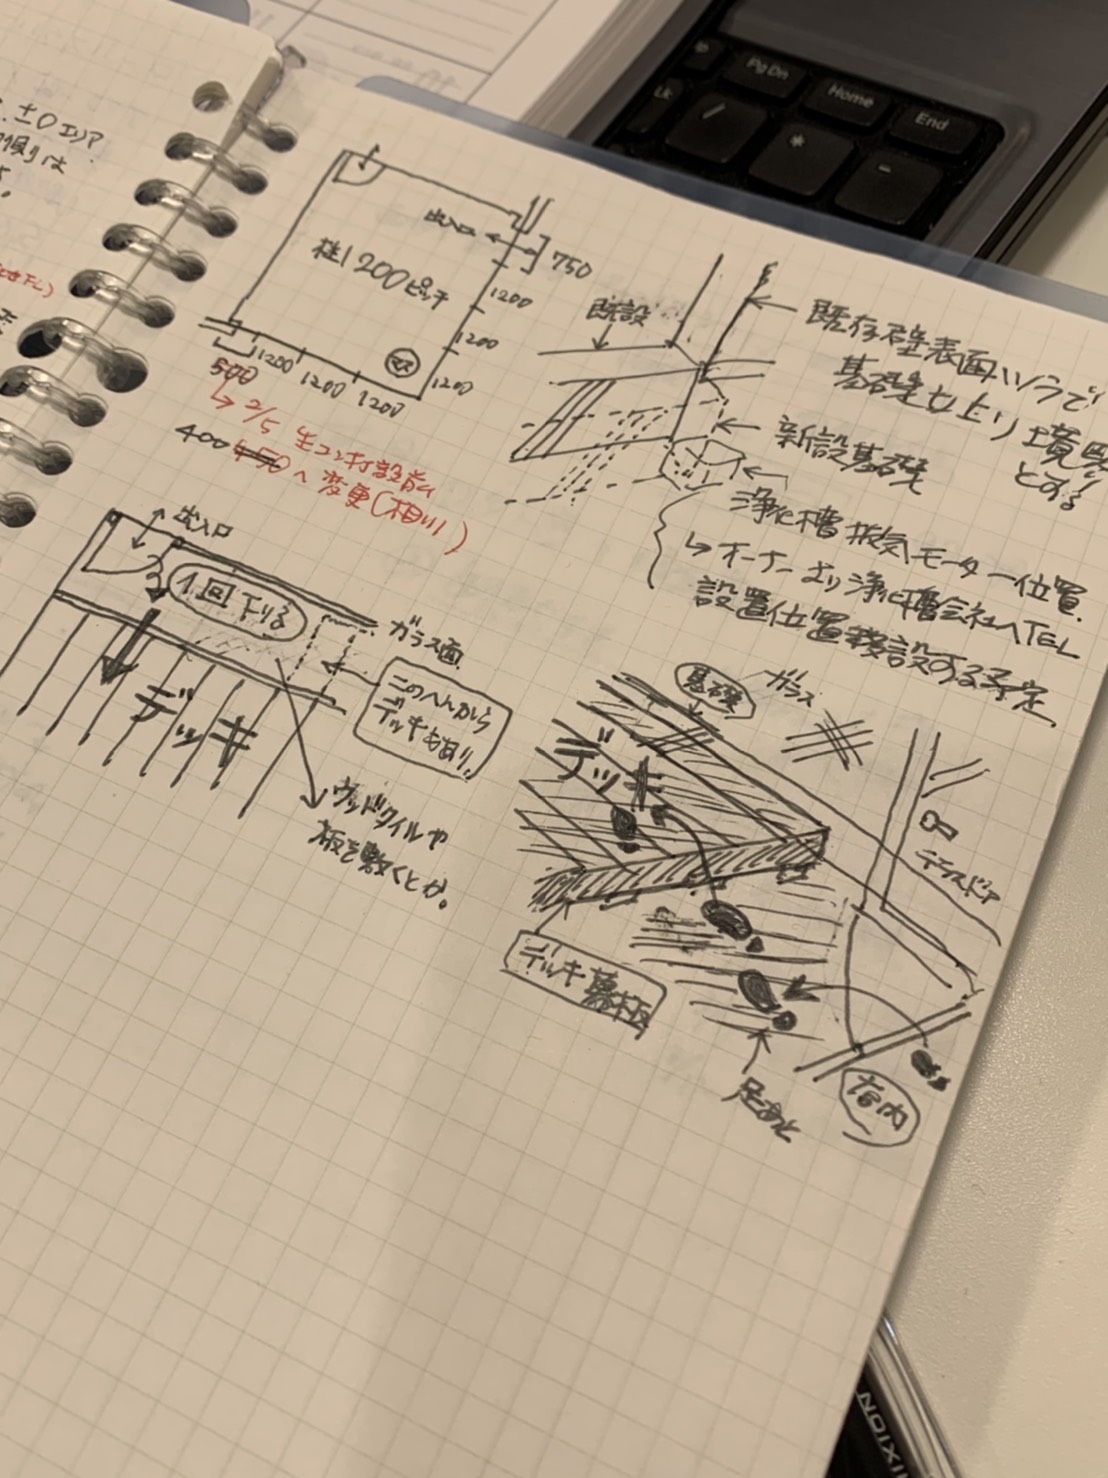 ±0エリア
傾りは
出入口
750
柱1200ピッチ
1200
1200
1200
マス
500
1200
1200
1200
→2/5 生コン打設前に
400 450へ変更(相川)
既設
既存壁表面ハツラで
基礎立上り境界
とする
新設基礎
浄化槽 換気モーター位置.
↳オーナーより浄化槽会社へTEL
設置位置移設する予定.
出入口
1回下りる
ガラス面
このへんから
デッキもあり.
デッキ
ウッドタイルや
板を敷くとか。
基礎
ガラス
デッキ
テラスドア
デッキ幕板
足あと
店内
Pg Dn
Home
End
Lk
/
*
-